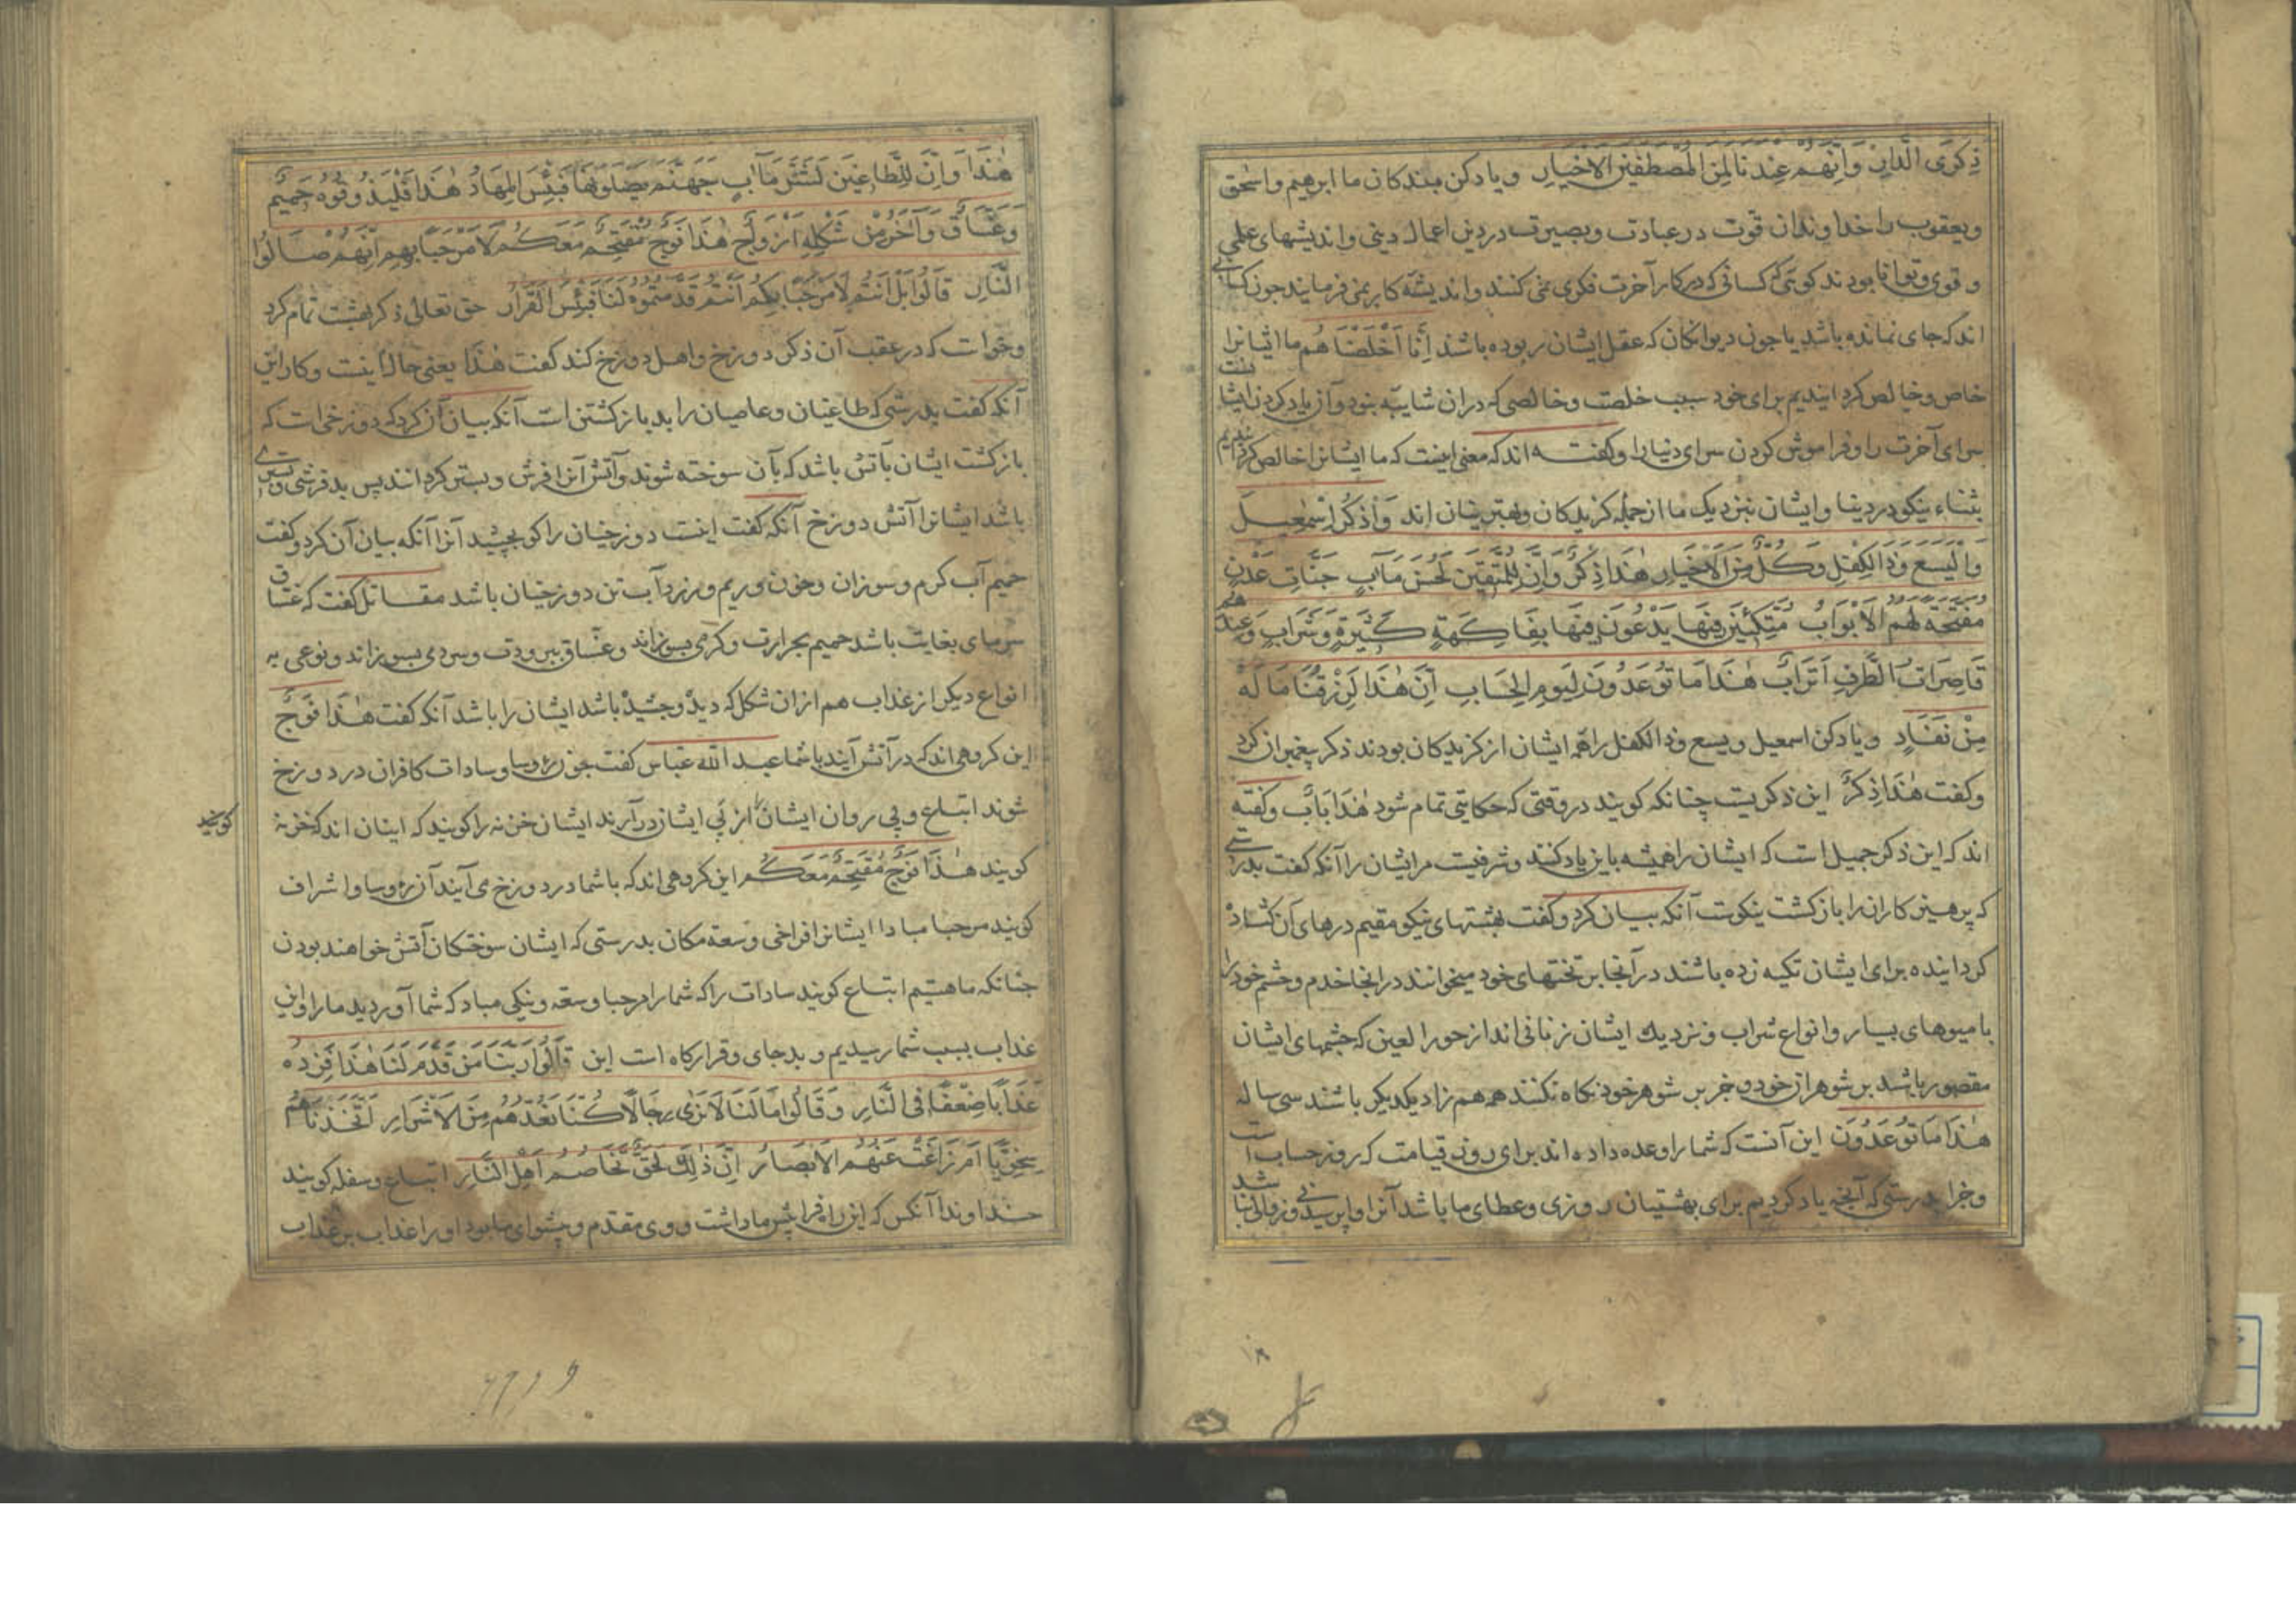 ذِكْرَى الدَّارِ وَاِنَّهُمْ عِنْدَنَا لَمِنَ الْمُصْطَفَيْنَ الْاَخْيَارِ ويا دكن بندكان ما ابرهيم واسحق
ويعقوب را خداوندان قوت در عبادت وبصيرت در دين اعمال دينى وانديشهاى علمى
وقوى وتوانا بودند كوئى كسانى كه در كار آخرت فكرى نمى كنند وانديشه كار نمى فرمايند چون كسانى
اند كه جاى نمانده باشد يا چون ديوانكان كه عقل ايشان ربوده باشند اِنَّا اَخْلَصْنَاهُمْ ما ايشانرا
خاص وخالص كردانيديم براى خود سبب خلصت وخالصى كه دران شايبه نبود وآن ياد كردن ايشانست
سراى آخرت را وفراموش كردن سراى دنيا را وكفته اند كه معنى اينست كه ما ايشانرا خالص كردانيديم
بثناء نيكو در دنيا وايشان بنزديك ما از جمله كزيدكان وبهترينان اند وَاذْكُرْ اِسْمٰعِيلَ
وَالْيَسَعَ وَذَا الْكِفْلِ وَكُلٌّ مِنَ الْاَخْيَارِ هٰذَا ذِكْرٌ وَاِنَّ لِلْمُتَّقِينَ لَحُسْنَ مَآبٍ جَنَّاتِ عَدْنٍ
مُفَتَّحَةً لَهُمُ الْاَبْوَابُ مُتَّكِئِينَ فِيهَا يَدْعُونَ فِيهَا بِفَاكِهَةٍ كَثِيرَةٍ وَشَرَابٍ وَعِنْدَهُمْ
قَاصِرَاتُ الطَّرْفِ اَتْرَابٌ هٰذَا مَا تُوعَدُونَ لِيَوْمِ الْحِسَابِ اِنَّ هٰذَا لَرِزْقُنَا مَا لَهُ
مِنْ نَفَادٍ ويا دكن اسمعيل ويسع وذا الكفل را همه ايشان از كزيدكان بودند ذكر پيغمبران كرد
وكفت هٰذَا ذِكْرٌ اين ذكريست چنانكه كويند در وقتى كه حكايتى تمام شود هٰذَا بَابٌ وكفته
اند كه اين ذكر جميل است كه ايشان را هميشه باين ياد كنند وشرفيست مرايشان را آنكه كفت بدرستى
كه پرهيزكاران را باز كشت نيكوست آنكه بيان كرد وكفت بهشتهاى نيكو مقيم درهاى آن كشاده
كردانيده براى ايشان تكيه زده باشند در آنجا بر تختهاى خود ميخوانند در انجا خدم وحشم خود را
با ميوهاى بسيار وانواع شراب ونزديك ايشان زنانى اند از حور العين كه چشمهاى ايشان
مقصور باشد بر شوهران خود وجز بر شوهر خود نكاه نكنند همه هم زاد يكديكر باشند سى ساله
هٰذَا مَا تُوعَدُونَ اين آنست كه شما را وعده داده اند براى روز قيامت كه روز حساب است
وجزا بدرستى كه آنچه ياد كرديم براى بهشتيان روزى وعطاى ما باشد آنرا
١٨
هٰذَا وَاِنَّ لِلطَّاغِينَ لَشَرَّ مَآبٍ جَهَنَّمَ يَصْلَوْنَهَا فَبِئْسَ الْمِهَادُ هٰذَا فَلْيَذُوقُوهُ حَمِيمٌ
وَغَسَّاقٌ وَآخَرُ مِنْ شَكْلِهِ اَزْوَاجٌ هٰذَا فَوْجٌ مُقْتَحِمٌ مَعَكُمْ لَا مَرْحَبًا بِهِمْ اِنَّهُمْ صَالُوا
النَّارِ قَالُوا بَلْ اَنْتُمْ لَا مَرْحَبًا بِكُمْ اَنْتُمْ قَدَّمْتُمُوهُ لَنَا فَبِئْسَ الْقَرَارُ حق تعالى ذكر بهشت تمام كرد
وخواست كه در عقب آن ذكر دوزخ واهل دوزخ كند كفت هٰذَا يعنى حال اينست وكار اين
آنكه كفت بدرستى كه طاغيان وعاصيان را بد باز كشتن است آنكه بيان آن كرد كه دوزخى است كه
باز كشت ايشان بآتش باشد كه بآن سوخته شوند وآتش آنرا فرش وبستر كردانند پس بد فرشى وبسترى
باشد ايشانرا آتش دوزخ آنكه كفت اينست دوزخيان را كو بچشيد آنرا آنكه بيان آن كرد وكفت
حميم آب كرم وسوزان وخون وريم وزرد آب تن دوزخيان باشد مقاتل كفت كه غساق
سرماى بغايت باشد حميم بحرارت وكرمى بسوزاند وغساق ببرودت وسردى بسوزاند ونوعى به
انواع ديكر از عذاب هم ازان شكل كه ديد وچشيد باشد ايشان را باشد آنكه كفت هٰذَا فَوْجٌ
اين كروهى اند كه در آتش آيند با شما عبد الله عباس كفت چون رؤسا وسادات كافران در دوزخ
شوند اتباع وپى روان ايشان از پى ايشان در آرند ايشان خزنه را كويند كه اينان اند كه خزنه
كويند
كويند هٰذَا فَوْجٌ مُقْتَحِمٌ مَعَكُمْ اين كروهى اند كه با شما در دوزخ مى آيند آن رؤسا واشراف
كويند مرحبا مبادا ايشانرا فراخى وسعة مكان بدرستى كه ايشان سوختكان آتش خواهند بودن
چنانكه ما هستيم اتباع كويند سادات را كه شما را مرحبا وسعة ونيكى مباد كه شما آورديد ما را واين
عذاب بسبب شما رسيديم وبد جاى وقراركاه است اين قَالُوا رَبَّنَا مَنْ قَدَّمَ لَنَا هٰذَا فَزِدْهُ
عَذَابًا ضِعْفًا فِى النَّارِ وَقَالُوا مَا لَنَا لَا نَرٰى رِجَالًا كُنَّا نَعُدُّهُمْ مِنَ الْاَشْرَارِ اَتَّخَذْنَاهُمْ
سِخْرِيًّا اَمْ زَاغَتْ عَنْهُمُ الْاَبْصَارُ اِنَّ ذٰلِكَ لَحَقٌّ تَخَاصُمُ اَهْلِ النَّارِ اتباع وسفله كويند
خداوندا آنكس كه اين راه فرا پيش ما داشت ووى مقدم وپيشواى ما بود او را عذاب بر عذاب